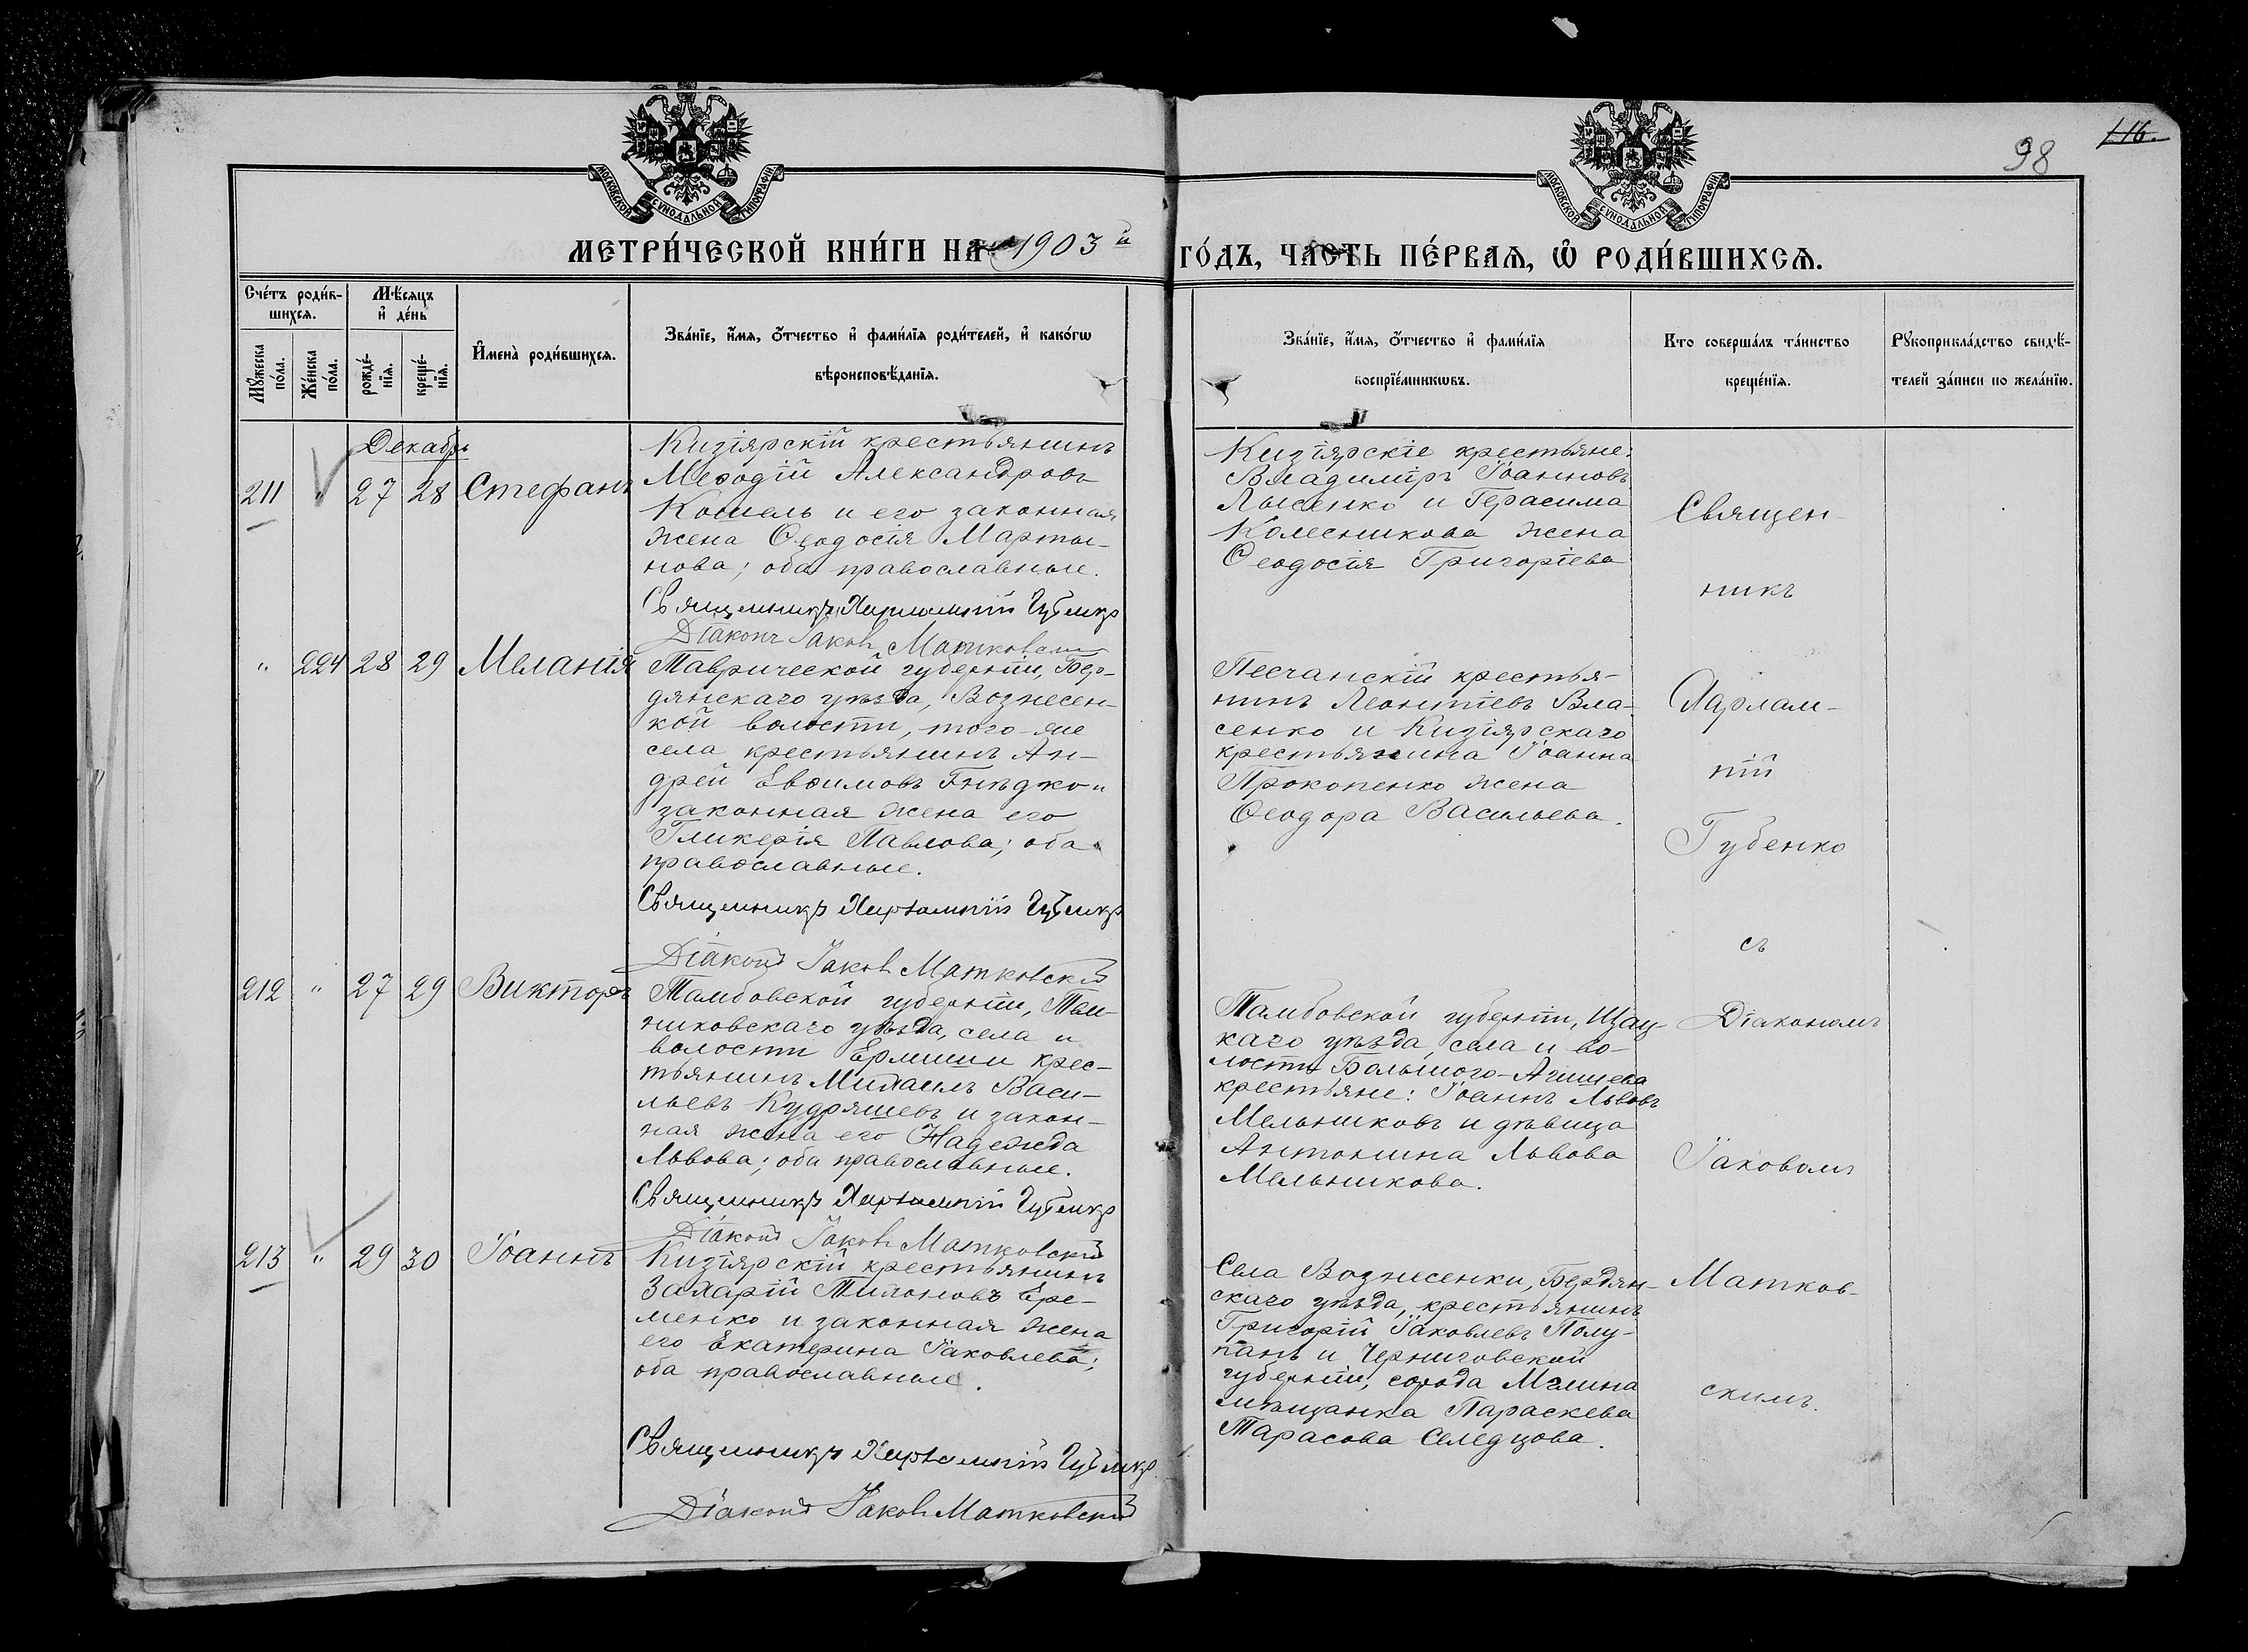 98
116.
МОСКОВСКОЙ СѴНОДАЛЬНОЙ ТИПОГРАФІИ
МОСКОВСКОЙ СѴНОДАЛЬНОЙ ТИПОГРАФІИ
МЕТРИ́ЧЕСКОЙ КНИ́ГИ НА 1903й ГО́ДЪ, ЧАСТЬ ПЕ́РВАЯ, Ѡ҆ РОДИ́ВШИХСЯ.
Сче́тъ роди́в-
шихся.
Мѣ́сяцъ
и҆ де́нь
Мꙋ́жеска
по́ла.
Же́нска
по́ла.
рожде́-
нїя.
креще́-
нїя.
И҆мена̀ роди́вшихся.
Зва́нїе, и҆́мя, ѻ҆́тчество и҆ фами́лїя роди́телей, и҆ како́гѡ
вѣроисповѣ́данїя.
Зва́нїе, и҆́мя, ѻ҆́тчество и҆ фами́лїя
воспрїе́мникѡвъ.
Кто соверша́лъ та́инство
креще́нїя.
Рꙋкоприкла́дство свидѣ́-
телей за́писи по жела́нїю.
Декабрь
211 " 27 28 Стефанъ
Кизіярскій крестьянинъ
Меѳодій Александровъ
Кошель и его законная
жена Ѳеодосія Марты-
нова; оба православные.
Священникъ Харлампій Губенко
Діаконъ Іаковъ Матковскій
Кизіярскіе крестьяне:
Владиміръ Іоанновъ
Лысенко и Герасима
Колесникова жена
Ѳеодосія Григоріева
" 224 28 29 Меланія
Таврической губерніи, Бер-
дянскаго уѣзда, Вознесен-
кой волости, того-же
села крестьянинъ Ан-
дрей Евѳимовъ Гнѣдко и
законная жена его
Гликерія Павлова; оба
православные.
Священникъ Харлампій Губенко
Діаконъ Іаковъ Матковскій
Песчанскій крестья-
нинъ Леонтіевъ Вла-
сенко и Кизіярскаго
крестьянина Іоанна
Прокопенко жена
Ѳеодора Васильева.
212 " 27 29 Викторъ
Тамбовской губерніи, Тем-
никовскаго уѣзда, села и
волости Ермиши крес-
тьянинъ Михаилъ Васи-
льевъ Кудряшевъ и закон-
ная жена его Надежда
Львова; оба православные.
Священникъ Харлампій Губенко
Діаконъ Іаковъ Матковскій
Тамбовской губерніи, Шац-
каго уѣзда, села и во-
лости Большого-Агишева
крестьяне: Іоаннъ Львовъ
Мельниковъ и дѣвица
Антонина Львова
Мельникова.
213 " 29 30 Іоаннъ
Кизіярскій крестьянинъ
Захарій Тихоновъ Ере-
менко и законная жена
его Екатерина Іаковлева;
оба православные.
Священникъ Харлампій Губенко
Діаконъ Іаковъ Матковскій
Села Вознесенки, Бердян-
скаго уѣзда, крестьянинъ
Григорій Іаковлевъ Полу-
панъ и Черниговской
губерніи, города Мглина
мѣщанка Параскева
Тарасова Селедцова.
Священ-
никъ
Харлам-
пій
Губенко
съ
Діакономъ
Іаковомъ
Матков-
скимъ.